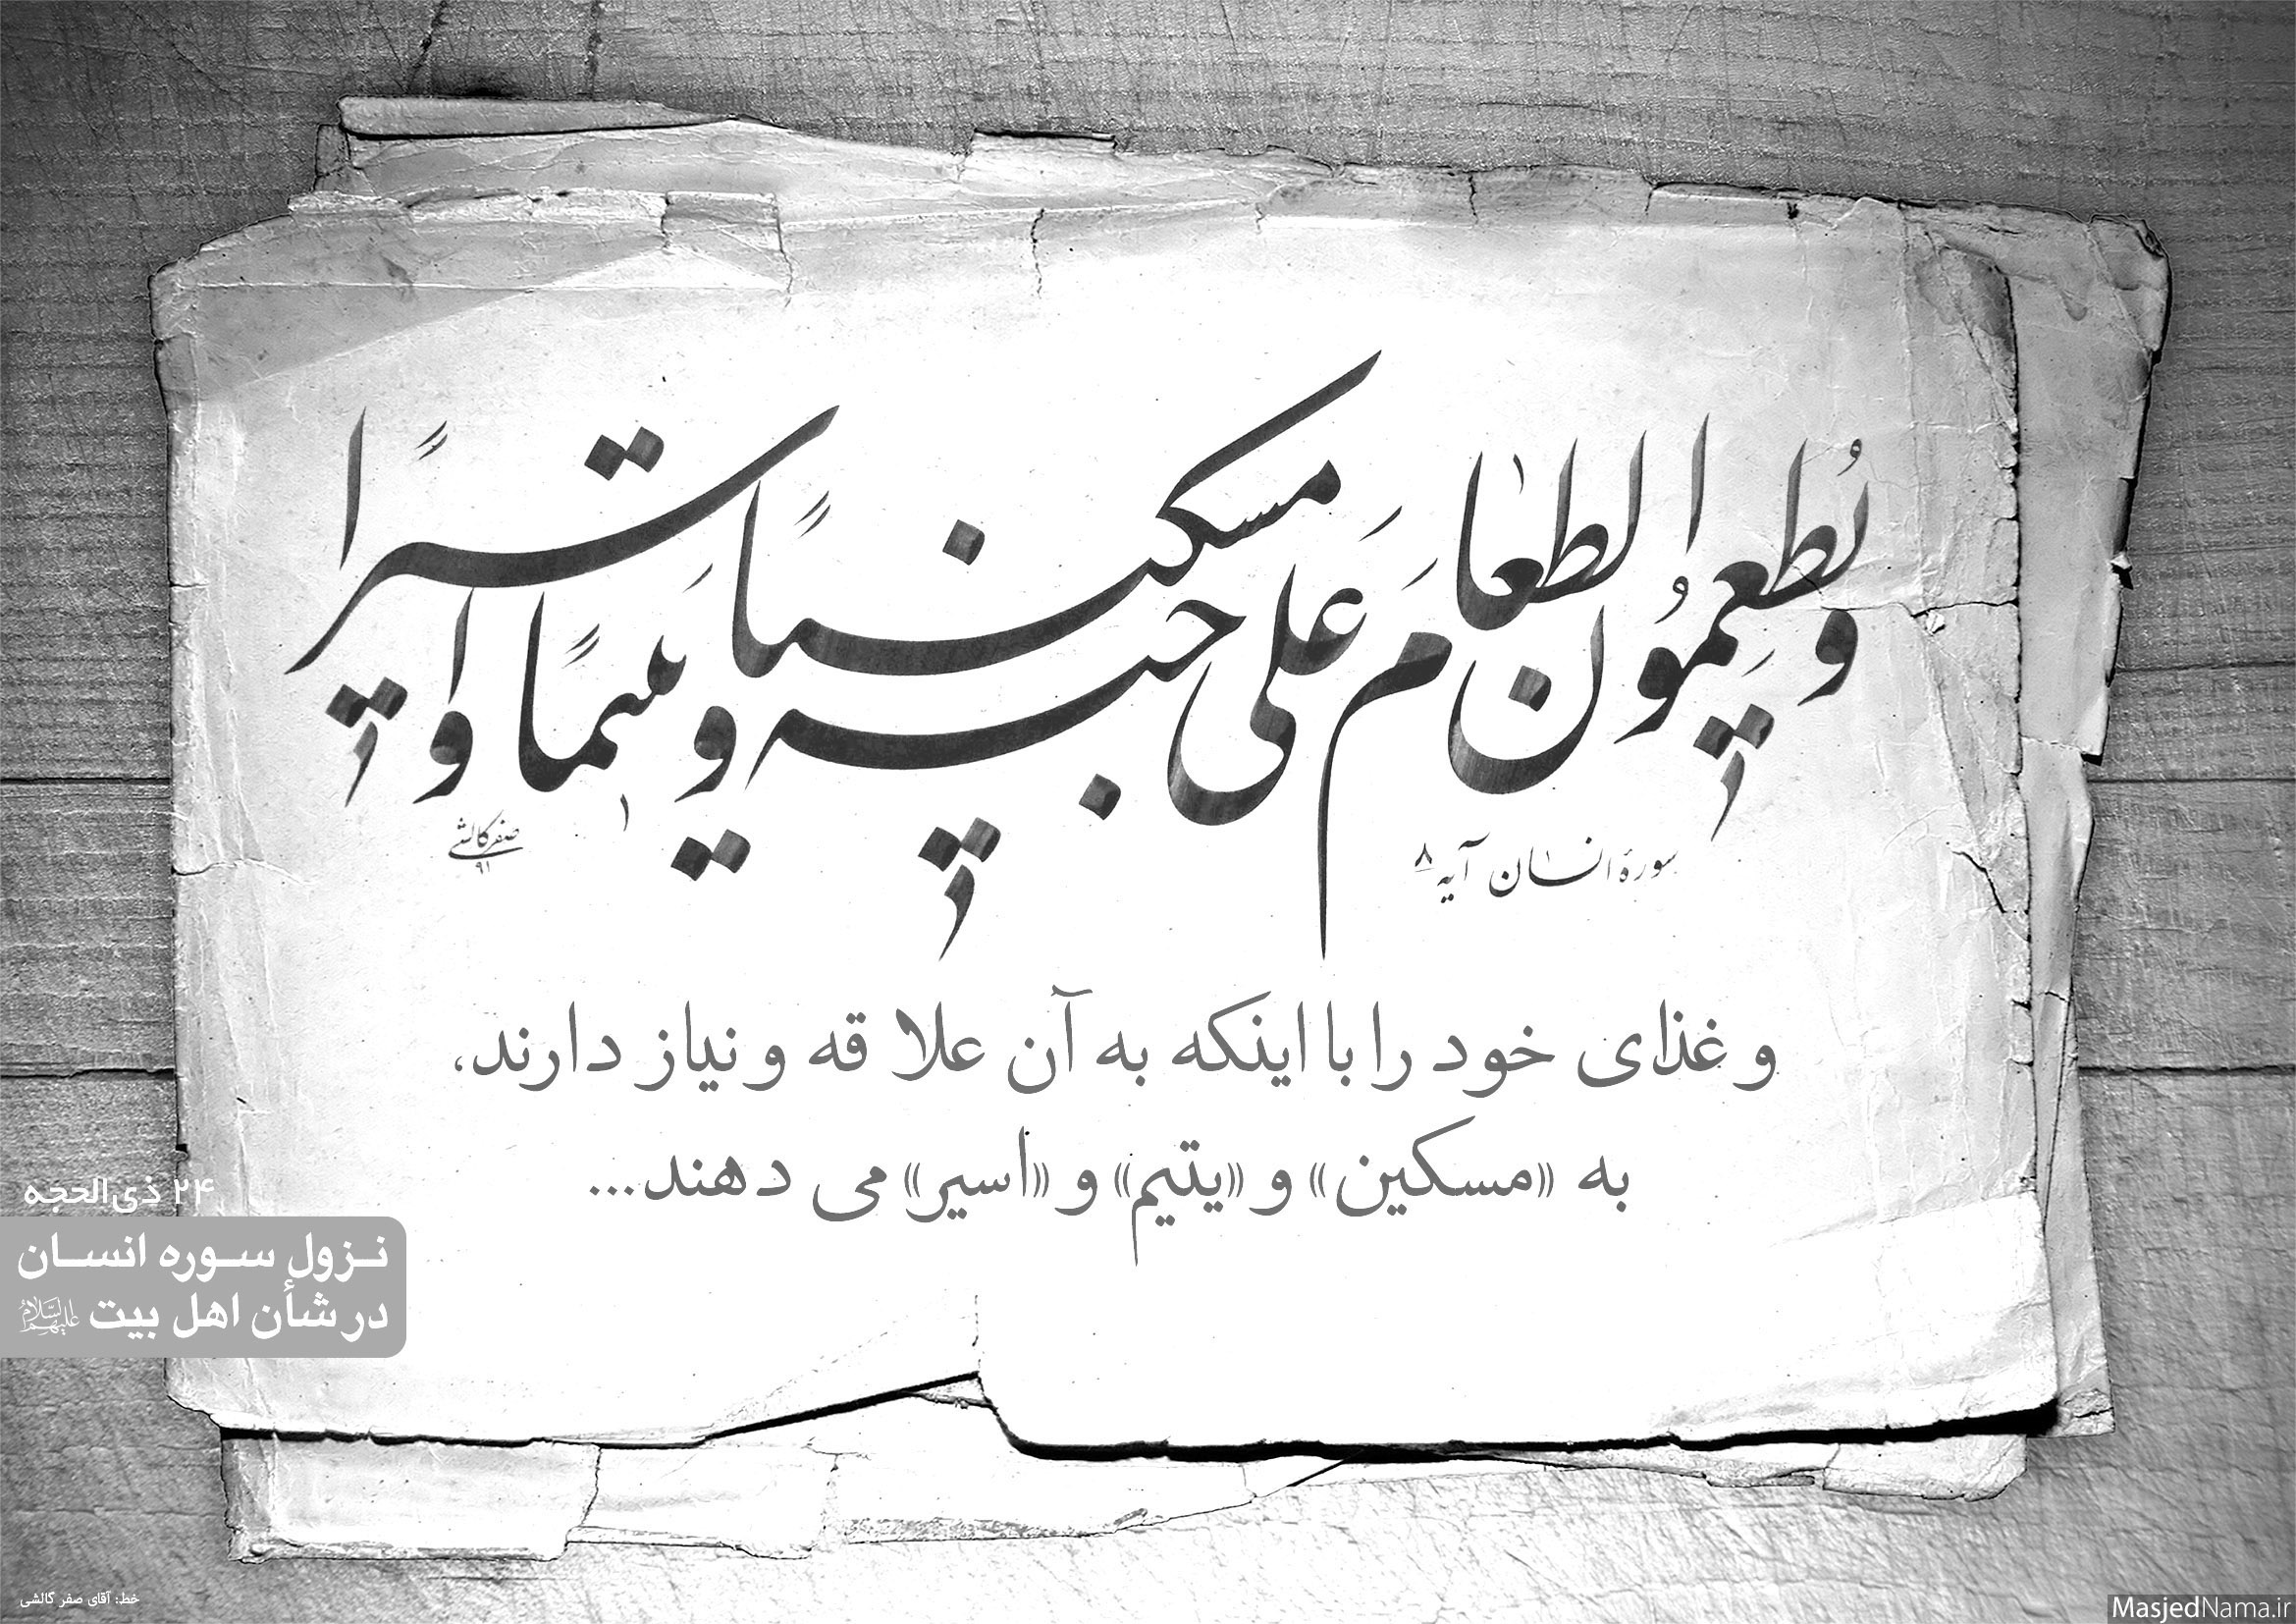 ویُطعِمُونَ الطعامَ عَلی حُبِّهِ مسکینًا وَیتیمًا وَاسیرًا
سورهٔ انسان آیه ۸
صفر کالشی
۹۱
و غذای خود را با اینکه به آن علاقه و نیاز دارند،
به «مسکین» و «یتیم» و «اسیر» می دهند...
۲۴ ذی‌الحجه
نـزول سـوره انسـان
در شأن اهل بیت علیهم‌السلام
خط: آقای صفر کالشی
MasjedNama.ir